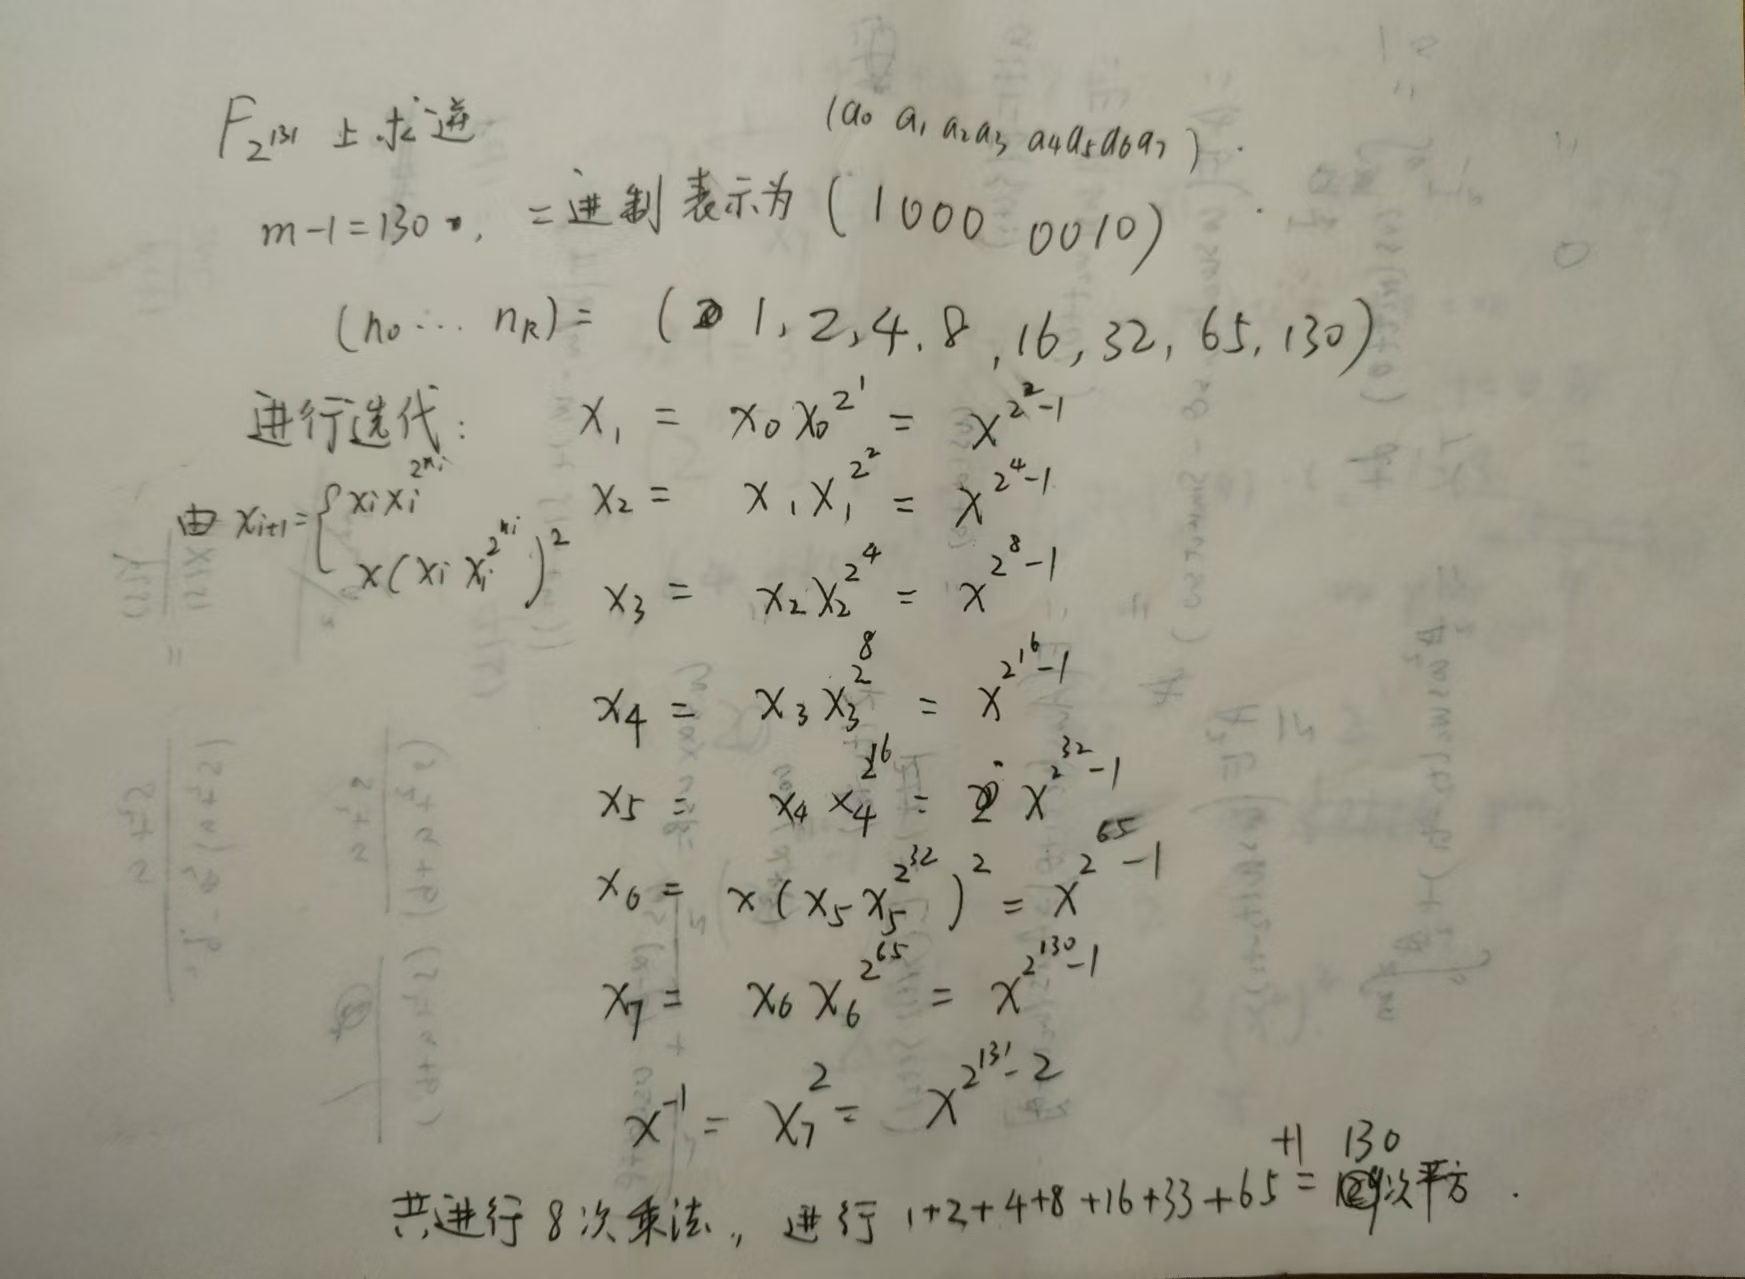 F_{2^{131}} 上求逆
(a₀ a₁ a₂a₃ a₄a₅a₆a₇).
m-1=130, 二进制表示为 (1000 0010)
(n₀ ... n_k) = (1, 2, 4, 8, 16, 32, 65, 130)
进行迭代:
x₁ = x₀x₀^{2^1} = x^{2^2-1}
由 x_{i+1} = { x_i x_i^{2^{n_i}}
x(x_i x_i^{2^{n_i}})^2
x₂ = x₁x₁^{2^2} = x^{2^4-1}
x₃ = x₂x₂^{2^4} = x^{2^8-1}
x₄ = x₃x₃^{2^8} = x^{2^{16}-1}
x₅ = x₄x₄^{2^{16}} = x^{2^{32}-1}
x₆ = x(x₅x₅^{2^{32}})^2 = x^{2^{65}-1}
x₇ = x₆x₆^{2^{65}} = x^{2^{130}-1}
x^{-1} = x₇^2 = x^{2^{131}-2}
共进行8次乘法, 进行 1+2+4+8+16+33+65+1 = 130次平方.